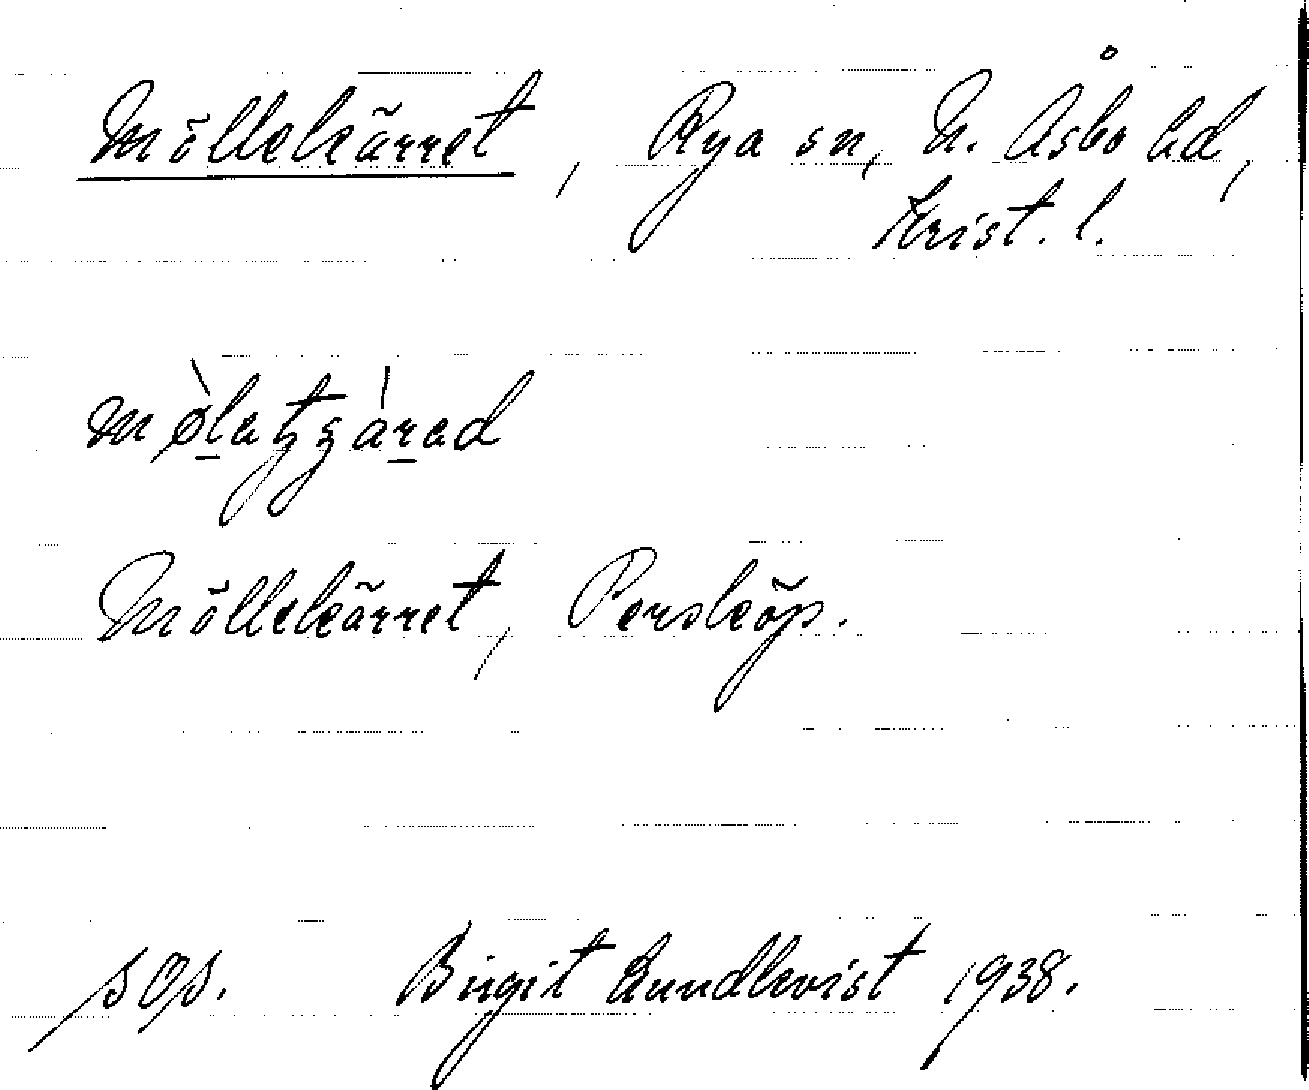 Möllekärret, Rya sn, N. Åsbo hd,
Krist. l.
Möllekärret, Persköp.
Birgit Lundkvist 1938.